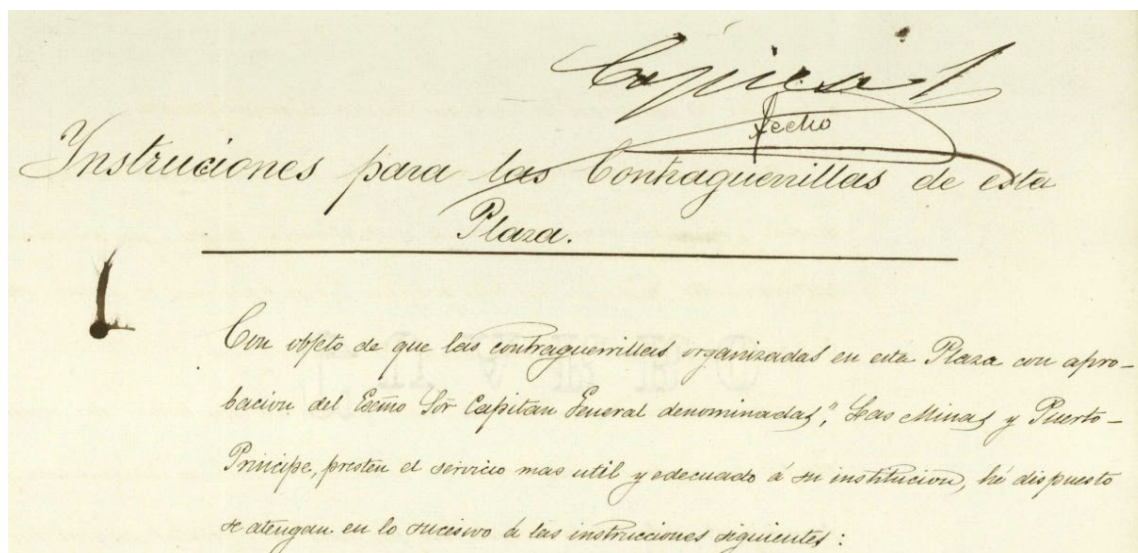 Copiese
fecho
Instruciones para las Contraguerrillas de esta
Plaza.
Con objeto de que las contraguerrillas organizadas en esta Plaza con apro-
bacion del Escmo Sor Capitan General denominadas, "Las Minas y Puerto-
Principe, presten el servicio mas util y edecuado á su institucion, hé dispuesto
se atengan en lo sucesivo á las instrucciones siguientes: